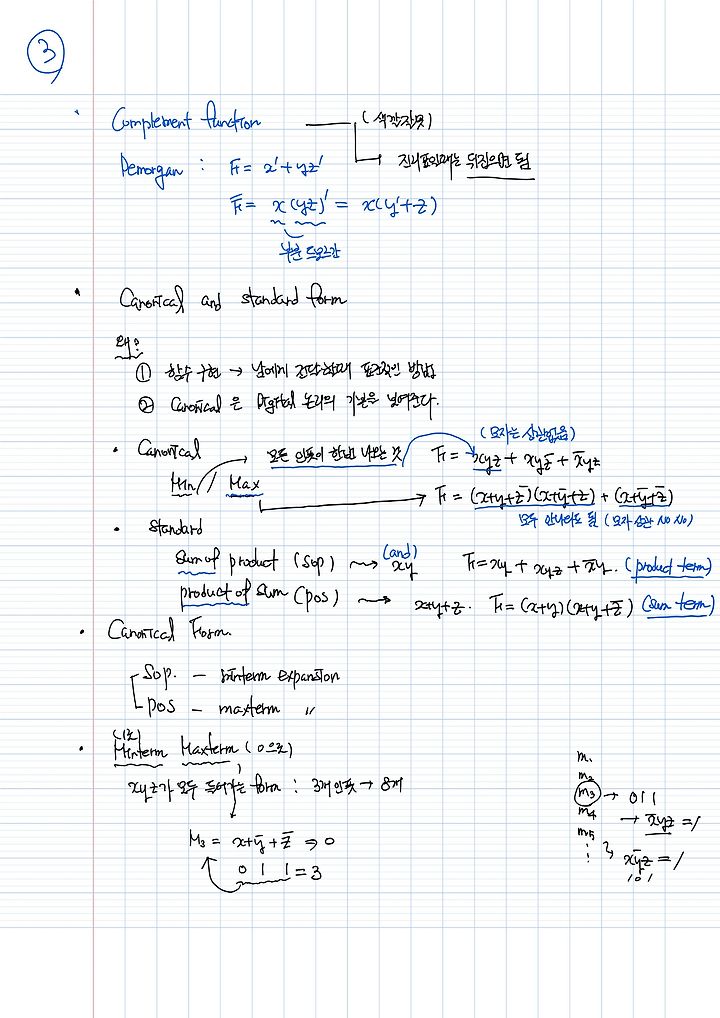 3
· Complement function (생각잘못)
Demorgan : F₁ = x' + yz' 진리표일때는 뒤집으면 됨
F̅₁ = x(yz')' = x(y'+z)
부분 드모르간
· Canonical and standard form
왜?
① 함수 구현 → 남에게 전달할때 표준적인 방법
② Canonical 은 Digital 논리의 기본을 보여준다.
(모자는 상관없음)
· Canonical 모든 인풋이 한번 나오는 것 F₁ = xyz + xyz̅ + x̅yz
Min / Max F₁ = (x+y+z̅)(x+y̅+z) + (x+y̅+z̅)
모두 안나와도 됨 (모자 상관 No No)
· Standard
(and)
sum of product (SOP) → xy F₁ = xy + xyz + x̅y. (product term)
product of sum (pos) → x+y+z. F₁ = (x+y)(x+y+z̅) (sum term)
· Canonical Form.
Sop. – minterm expansion
pos – maxterm "
(1로)
· Minterm Maxterm (0으로)
xyz가 모두 들어가는 form : 3개 인풋 → 8개
M₃ = x+y̅+z̅ ⇒ 0
0 1 1 = 3
m₁
m₂
m₃ → 011
m₄ → x̅yz = 1
m₅
⋮ xy̅z = 1
101